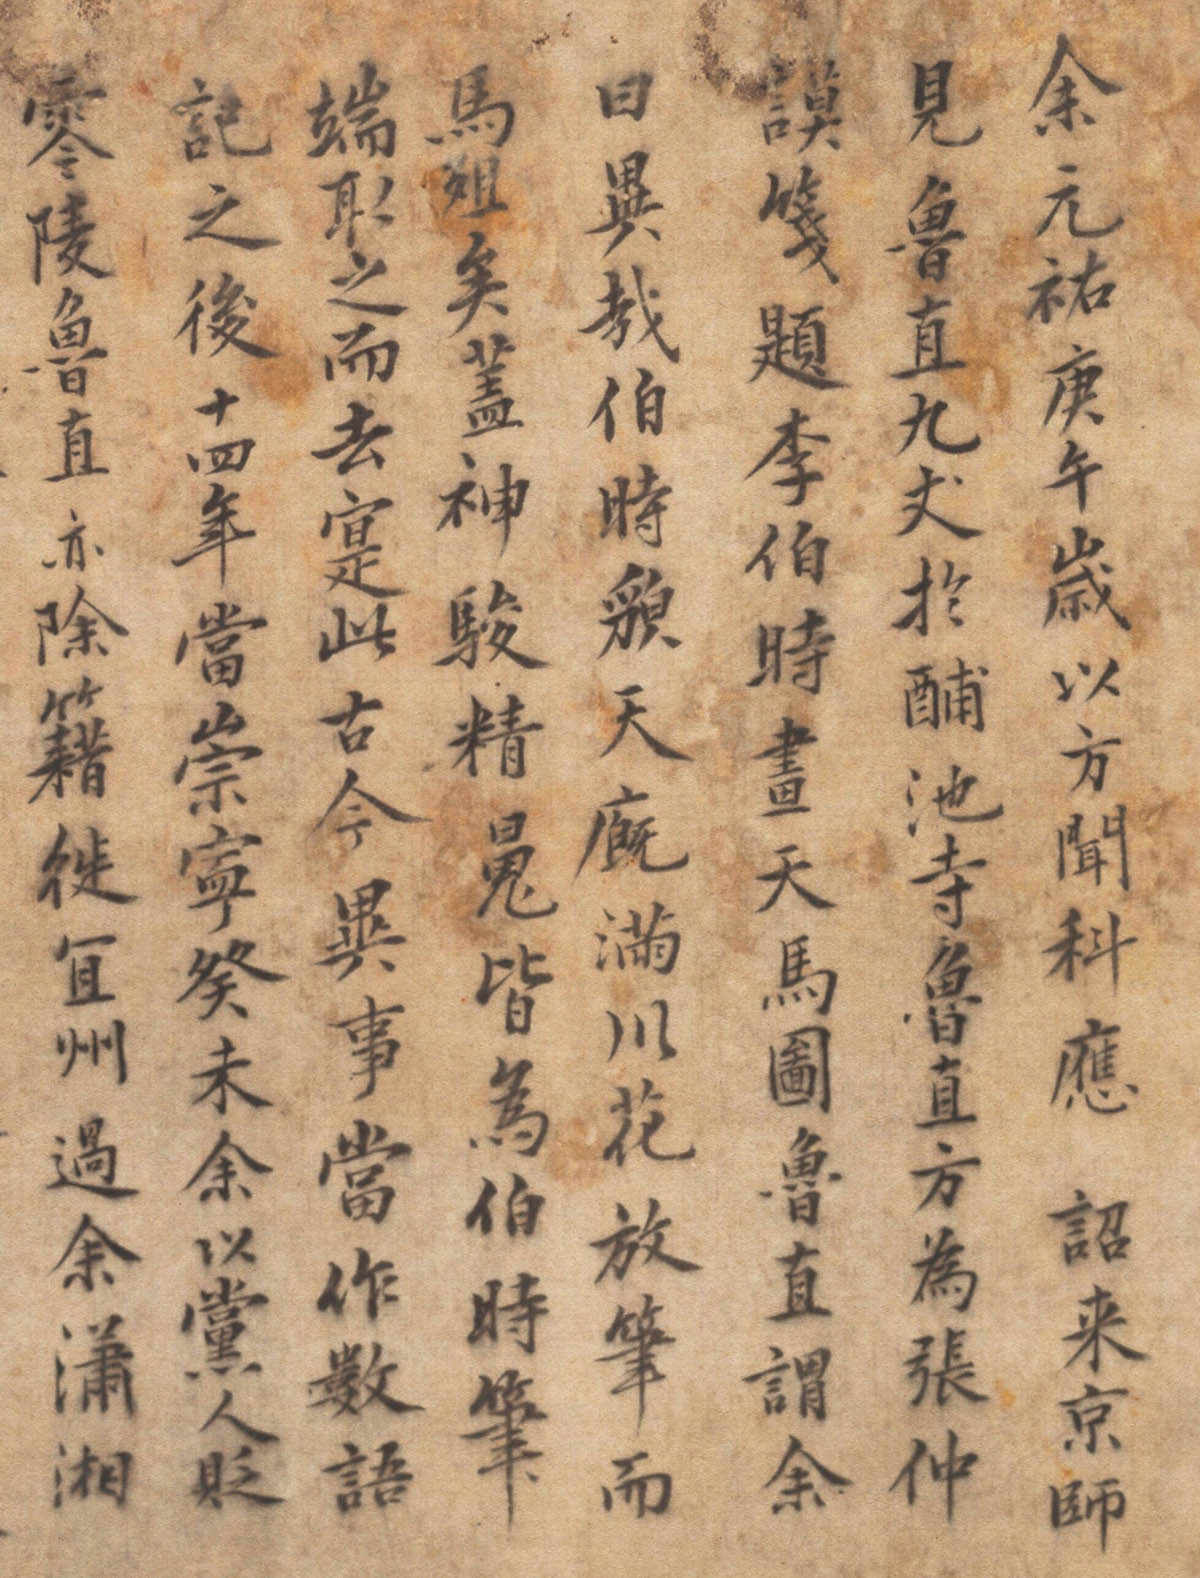 余元祐庚午歲以方聞科應　詔来京師
見魯直九丈於酺池寺魯直方為張仲
謨箋題李伯時畫天馬圖魯直謂余
曰異哉伯時貌天厩滿川花放筆而
馬殂矣蓋神駿精魄皆為伯時筆
端取之而去寔此古今異事當作數語
記之後十四年當崇寧癸未余以黨人貶
零陵魯直亦除籍徙冝州過余瀟湘